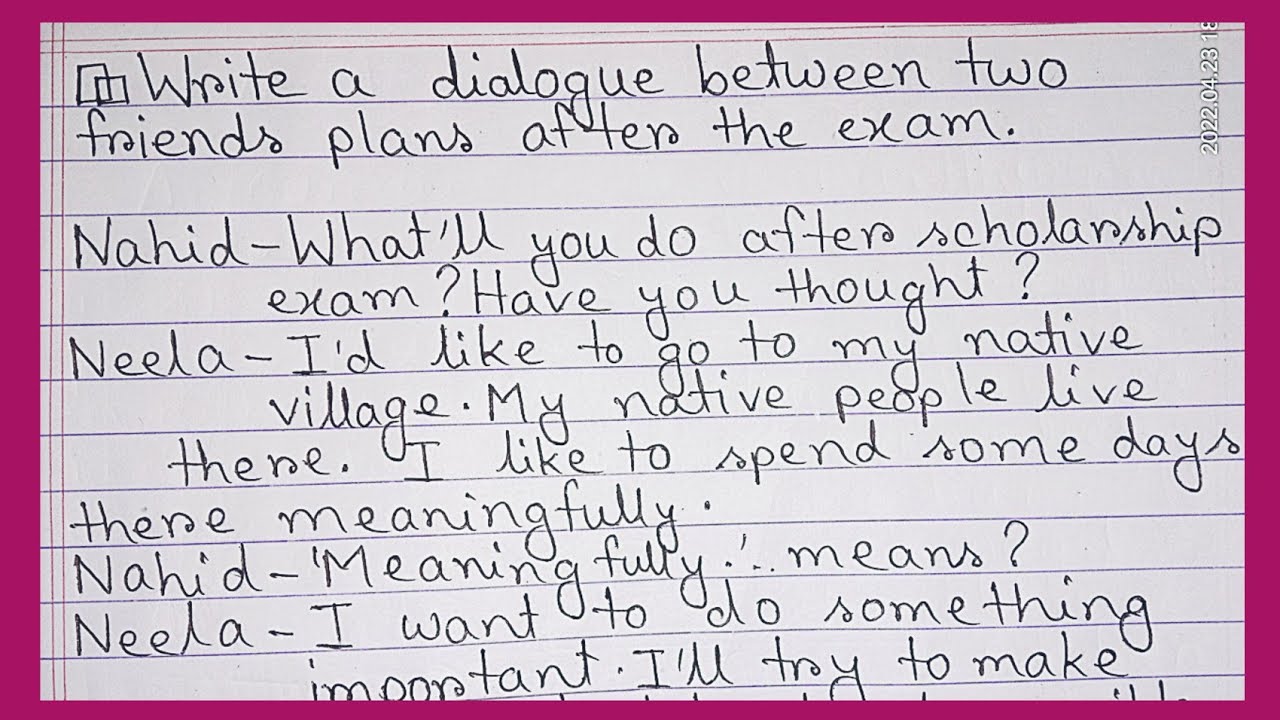 Write a dialogue between two
friends plans after the exam.
Nahid-What'll you do after scholarship
exam? Have you thought?
Neela-I'd like to go to my native
village. My native people live
there. I like to spend some days
there meaningfully.
Nahid-'Meaningfully.'.. means?
Neela-I want to do something
important. I'll try to make
2022.04.23 18